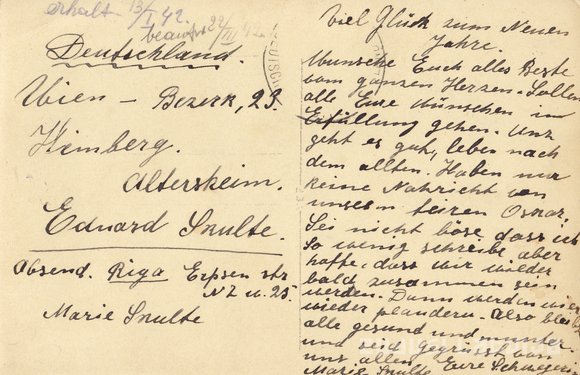 erhalt 13/I 42
beantw. 22/III 42
Deutschland.
Wien – Bezerk, 23.
Himberg.
Altersheim.
Eduard Snulte.
Absend. Riga
NZ w. 25.
Marie Snulte
Viel Glück zum Neuen
Jahre.
Wunsche Euch alles Beste
vom ganzen Herzen. Sollen
alle Eure Wünschen im
Erfüllung gehen. Uns
geht es gut, leben nach
dem allten. Haben nur
keine Nahricht von
unsern Oskar.
Sei nicht böse dass ich
so wenig schreibe aber
hoffe, dass wir wieder
bald zusammen sein
werden. Dann werden wir
wieder plaudern. Also bleibt
alle gesund und munter.
und seid gegrüsst von
uns allen. Eure Schwester.
Marie Snulte